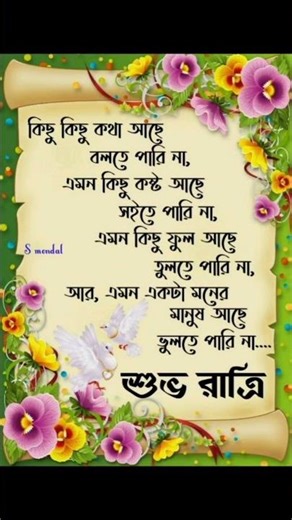 কিছু কিছু কথা আছে
বলতে পারি না,
এমন কিছু কস্ট আছে
সইতে পারি না,
এমন কিছু ফুল আছে
তুলতে পারি না,
আর, এমন একটা মনের
মানুষ আছে
ভুলতে পারি না....
S mondal
শুভ রাত্রি